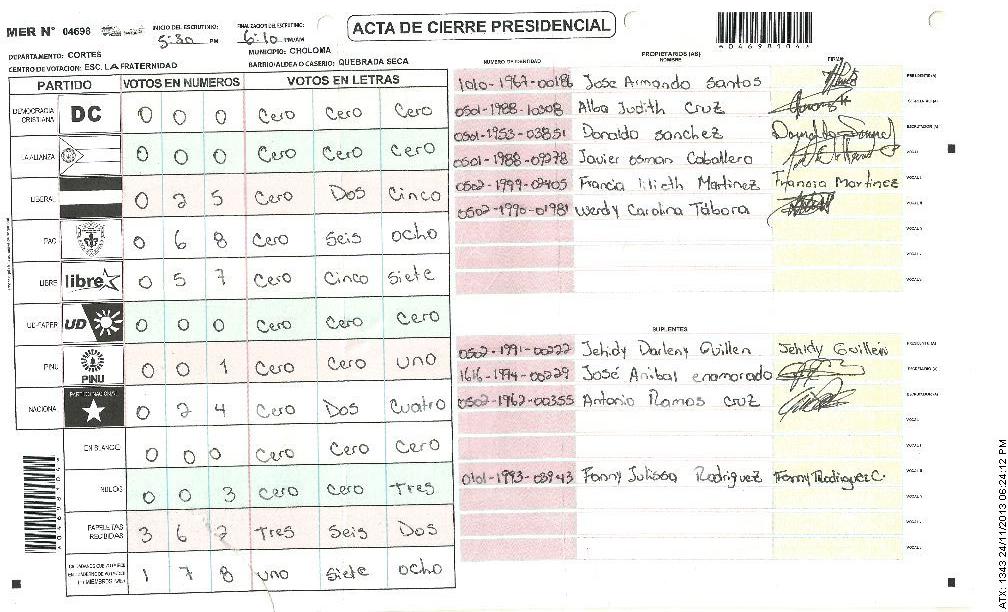 ACTA DE CIERRE PRESIDENCIAL
MER N° 04698
INICIO DEL ESCRUTINIO: 5:30 PM
FINALIZACION DEL ESCRUTINIO: 6:10 PM/AM
DEPARTAMENTO: CORTES
MUNICIPIO: CHOLOMA
CENTRO DE VOTACION: ESC. LA FRATERNIDAD
BARRIO/ALDEA O CASERIO: QUEBRADA SECA
PARTIDO VOTOS EN NUMEROS VOTOS EN LETRAS
DEMOCRACIA CRISTIANA DC 0 0 0 Cero Cero Cero
LA ALIANZA 0 0 0 Cero Cero Cero
LIBERAL 0 2 5 Cero Dos Cinco
PAC 0 6 8 Cero Seis ocho
LIBRE libre 0 5 7 Cero Cinco Siete
UD-FAPER UD 0 0 0 Cero Cero Cero
PINU PINU 0 0 1 Cero Cero uno
NACIONAL PARTIDO NACIONAL 0 2 4 Cero Dos Cuatro
EN BLANCO 0 0 0 Cero Cero Cero
NULOS 0 0 3 Cero Cero Tres
PAPELETAS RECIBIDAS 3 6 2 Tres Seis Dos
1 7 8 uno Siete ocho
PROPIETARIOS (AS)
NUMERO DE IDENTIDAD NOMBRE FIRMA
1010-1967-00186 Jose Armando Santos PRESIDENTE(A)
0501-1988-10308 Alba Judith Cruz SECRETARIO(A)
0501-1953-03851 Donaldo Sanchez ESCRUTADOR(A)
0501-1988-09278 Javier osman Caballero
0502-1999-02405 Francia lilieth Martinez Francia Martinez
0502-1990-01981 Werdy Carolina Tabora
SUPLENTES
0502-1991-00222 Jehidy Darleny Guillen Jehidy Guillen PRESIDENTE(A)
1616-1974-00229 José Anibal enamorado SECRETARIO(A)
0502-1962-00355 Antonio Ramos Cruz ESCRUTADOR(A)
0101-1993-03943 Fanny Julissa Rodriguez Fanny Rodriguez C.
ATX: 1343 24/11/2013 06:24:12 PM